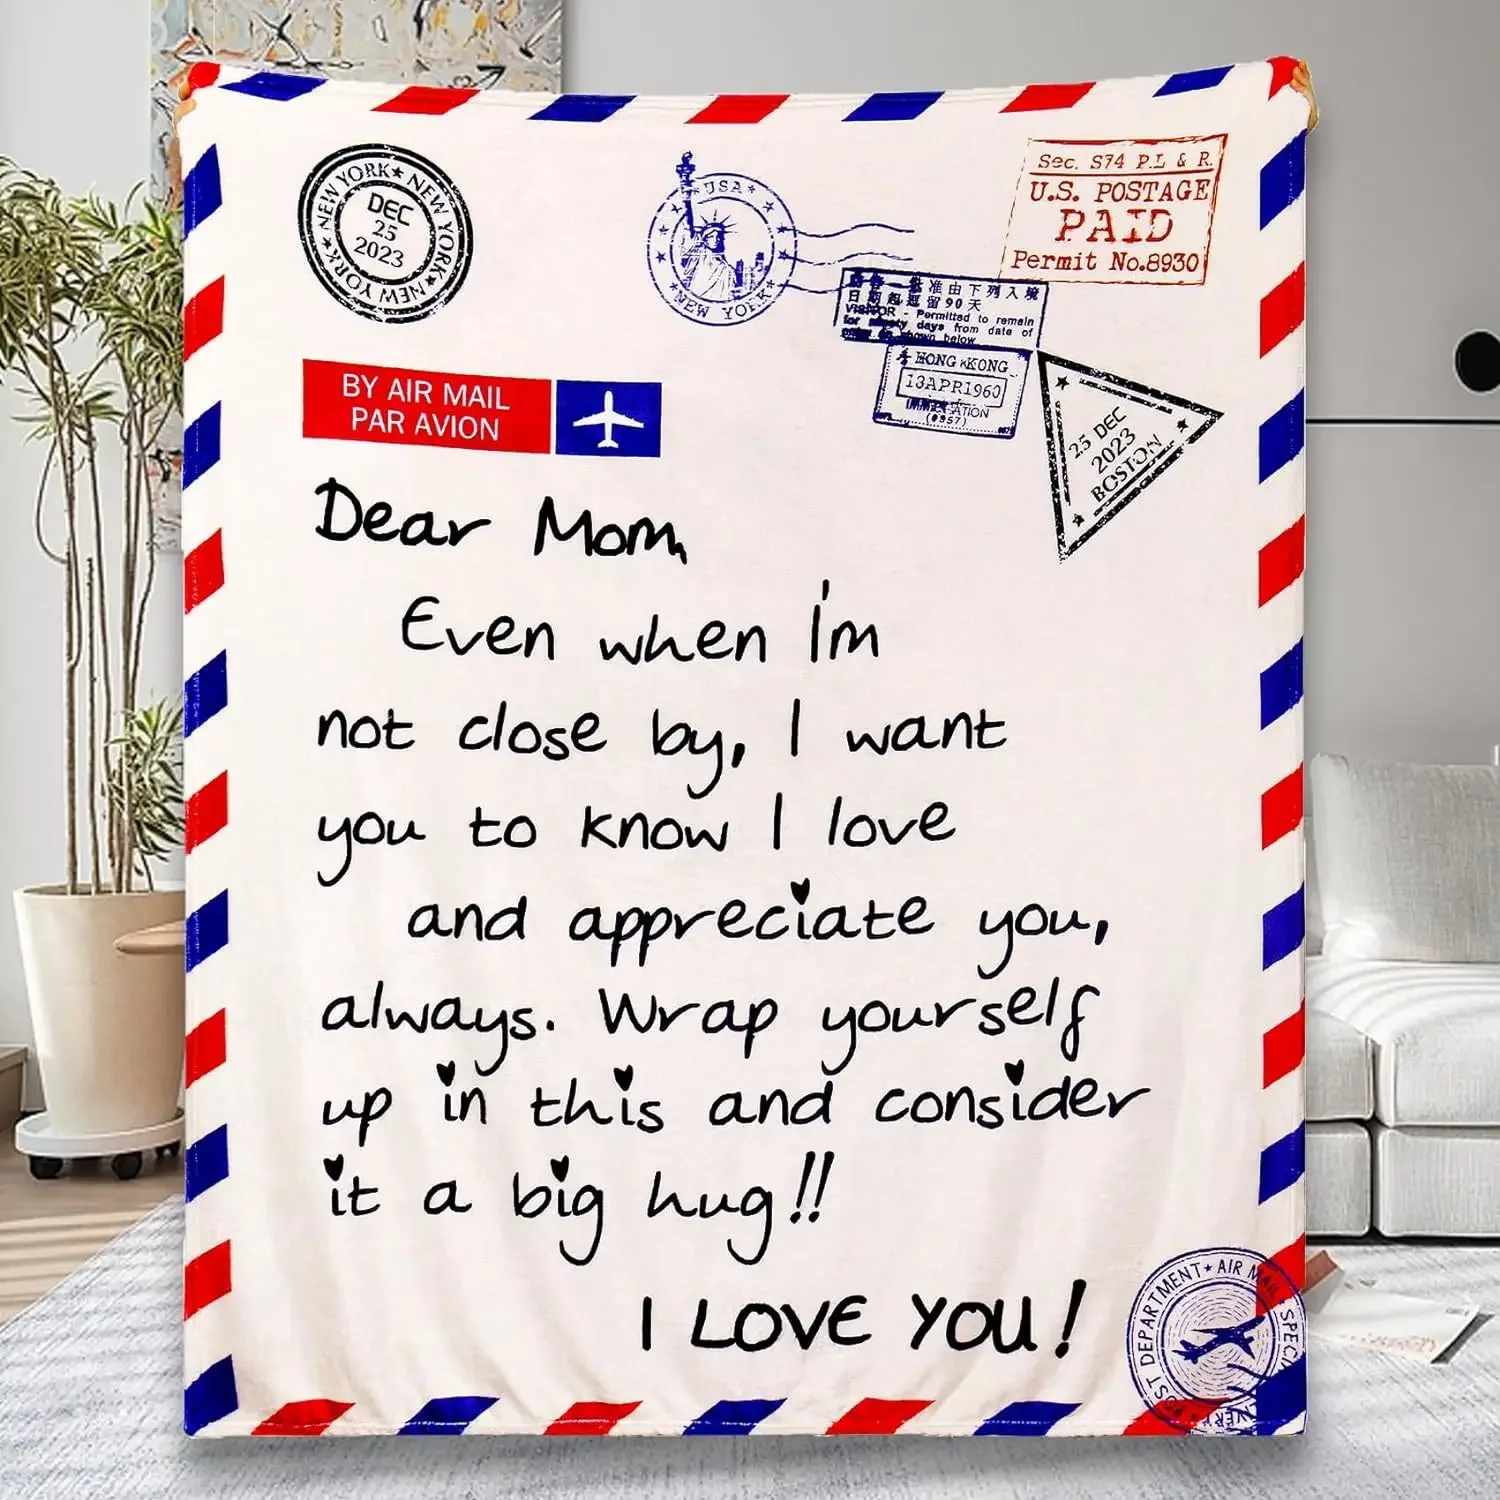 NEW YORK★NEW YORK★NEW YORK★
DEC
25
2023
★USA★
★NEW YORK★
Sec. S74 P.L & R.
U.S. POSTAGE
PAID
Permit No.8930
批准由下列入境
日期起逗留90天
VISITOR - Permitted to remain
for ninety days from date of
shown below
HONG KONG
13APR1960
(0957)
25 DEC
2023
BOSTON
BY AIR MAIL
PAR AVION
Dear Mom,
Even when I'm
not close by, I want
you to know I love
and appreciate you,
always. Wrap yourself
up in this and consider
it a big hug!!
I LOVE YOU!
DEPARTMENT★AIR MAIL